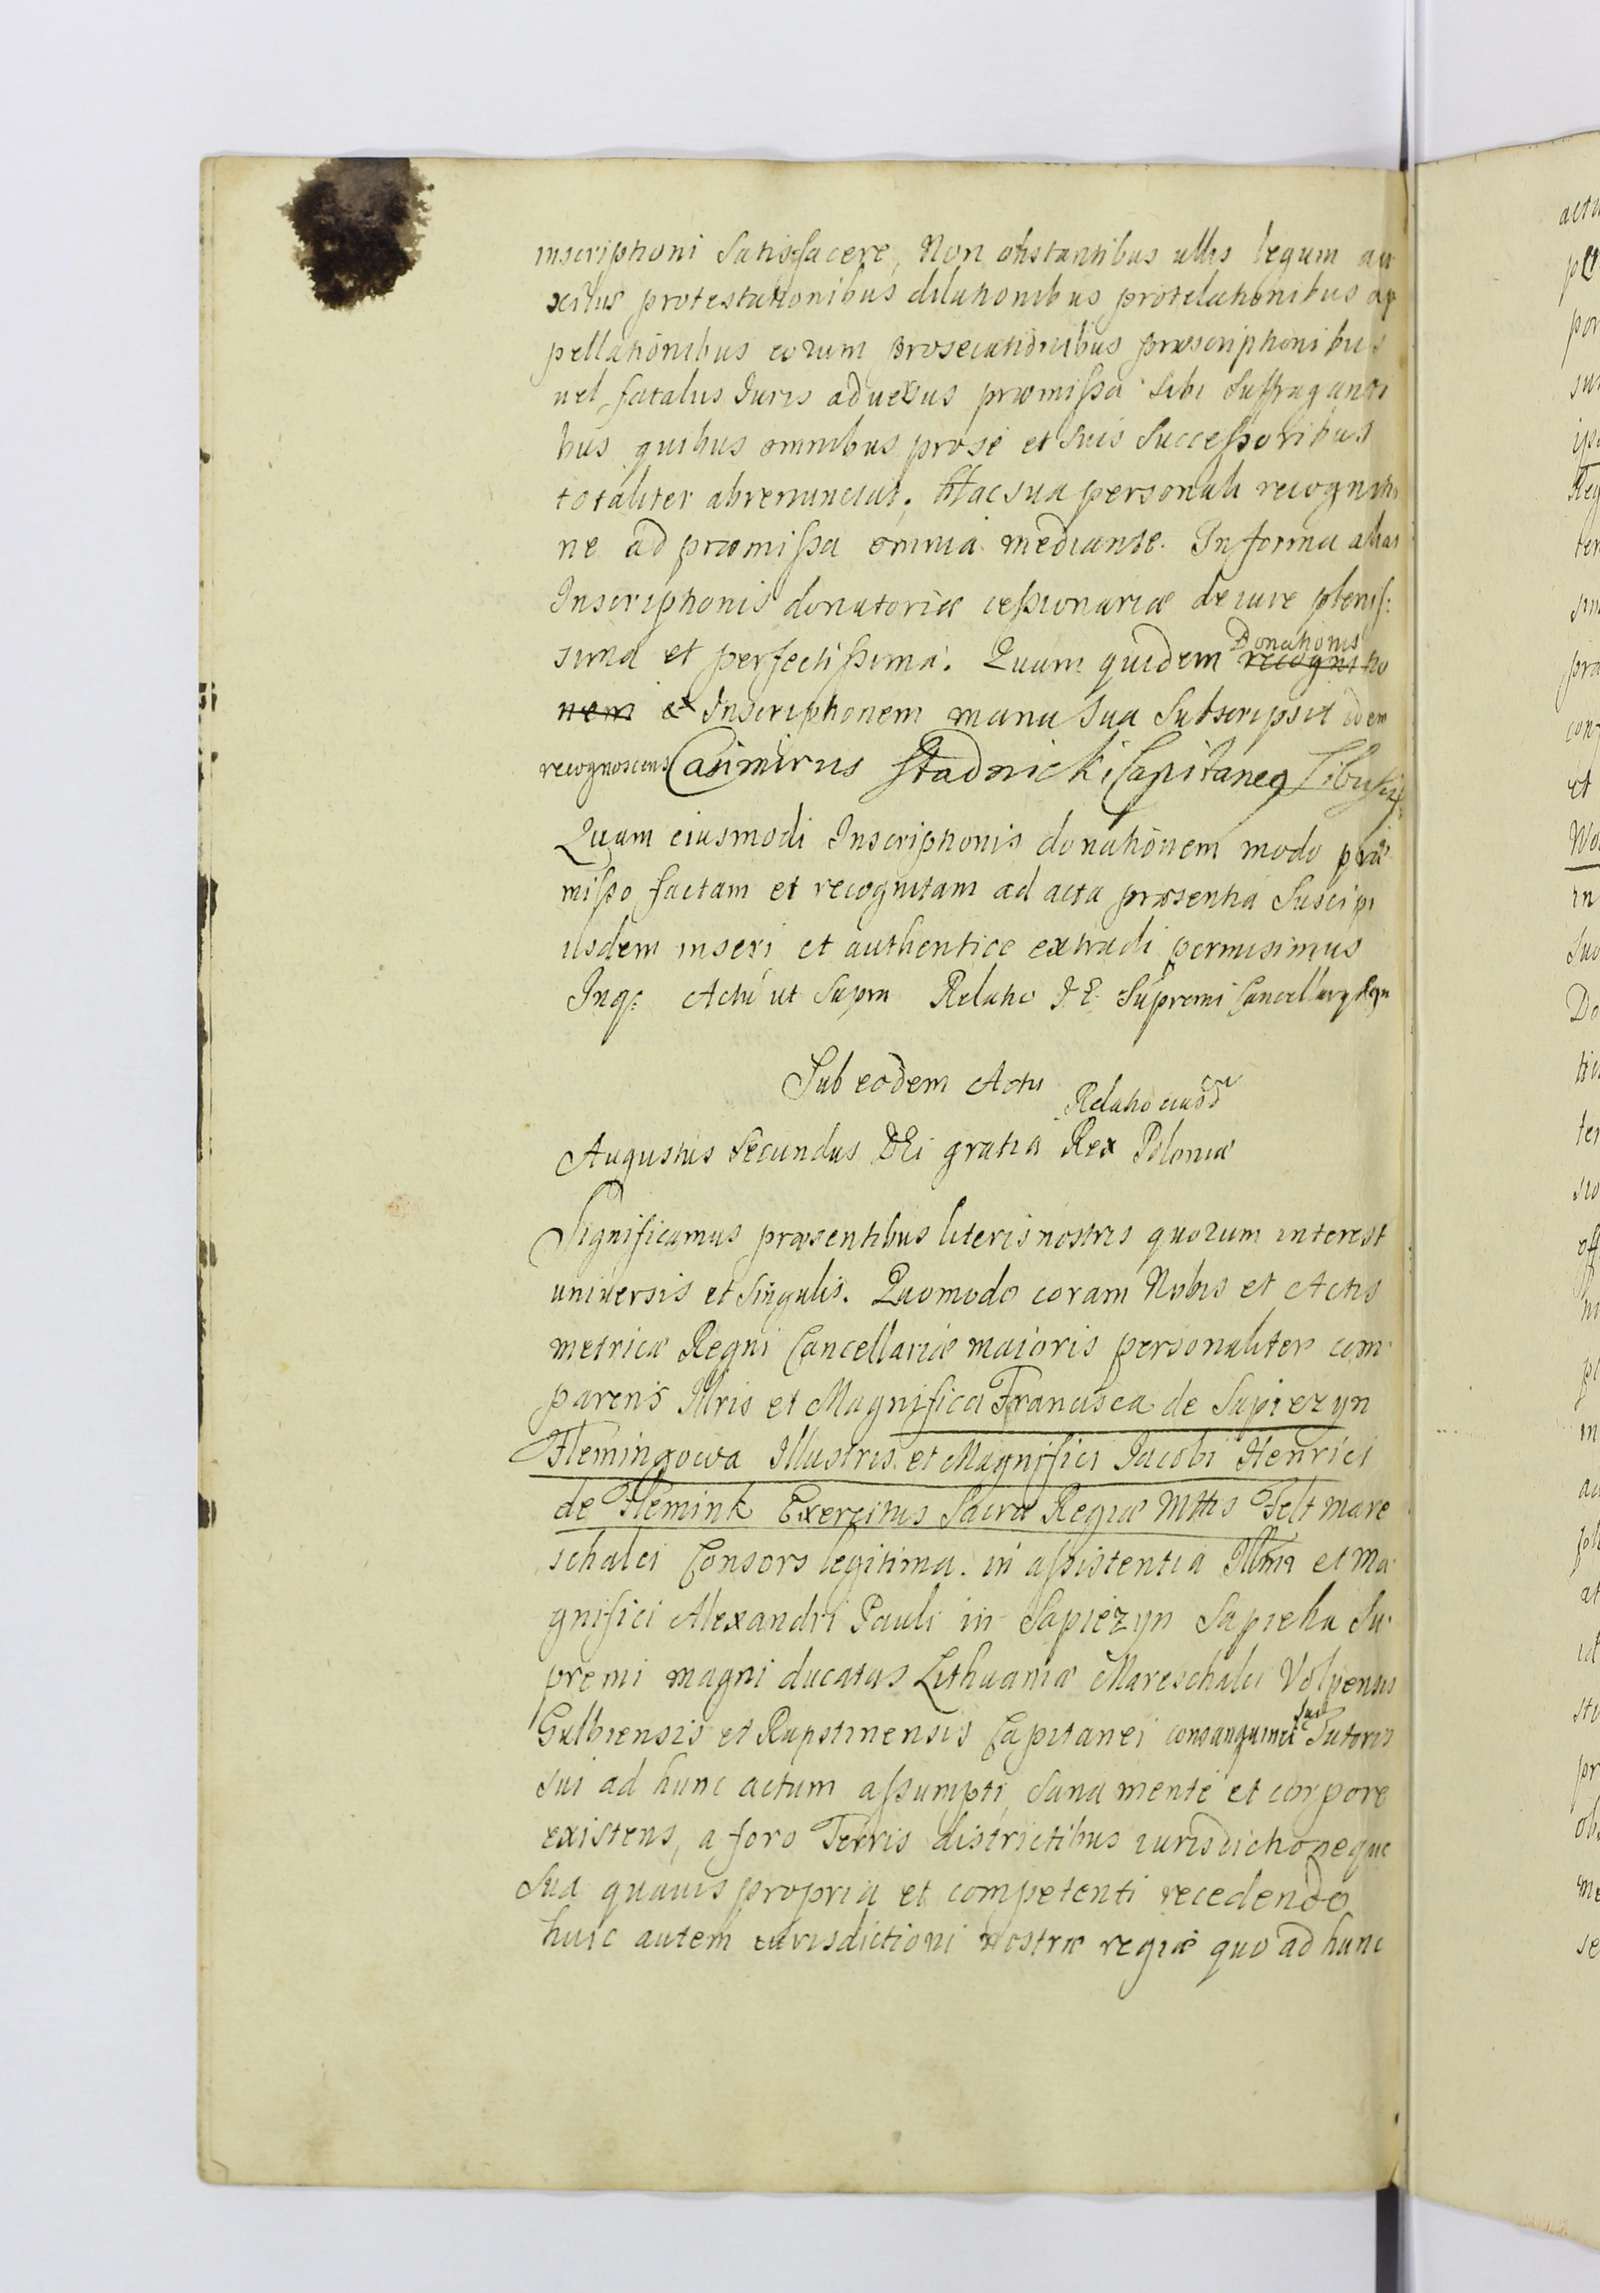 inscriptioni satisfacere, Non obstantibus ullis legum au
xilijs protestationibus dilationibus protelationibus ap
pellationibus eorum prosecutionibus præscriptionibus
uel fatalijs Juris aduersus præmissa sibi suffraganti
bus quibus omnibus pro se et suis successoribus
totaliter abrenunciat. Hac sua personali recognitio
ne ad præmissa omnia mediante. In forma alias
Inscriptionis donatoriæ cessionariæ de iure pleniss:
sima et perfectissima. Quam quidem recognitio
Donationis
nem et Inscriptionem manu sua subscripsit idem
recognoscens Casimirus Stadnicki Capitaneq
Quam eiusmodi Inscriptionis donationem modo præ
misso factam et recognitam ad acta præsentia suscipi
iisdem inseri et authentice extradi permisimus
Inqs: Actū ut supra Relatio I. E. Supremi Cancellarij Regn
Sub eodem Actu
Relatio eiusd
Augustus Secundus DEi gratia Rex Poloniæ
Significamus præsentibus literis nostris quorum interest
universis et singulis. Quomodo coram Nobis et Actis
metricæ Regni Cancellariæ maioris personaliter com
parens Illris et Magnifica Francisca de Sapiezyn
Flemingowa Illustris et Magnifici Jacobi Henrici
de Flemink Exercitus Sacræ Regiæ Mttis Felt mare
schalci Consors legitima. in assistentia Illmi et Ma
gnifici Alexandri Pauli in Sapiezyn Sapieha Su
premi magni ducatus Lithuaniæ Mareschalci Volpensis
Gulbiensis et Rapstinensis Capitanei consanguinei sui Tutoris
sui ad hunc actum assumpti, sana mente et corpore
existens, a foro Terris districtibus iurisdictioneque
sua quauis propria et competenti recedendo
huic autem iurisdictioni nostræ regiæ quo ad hunc